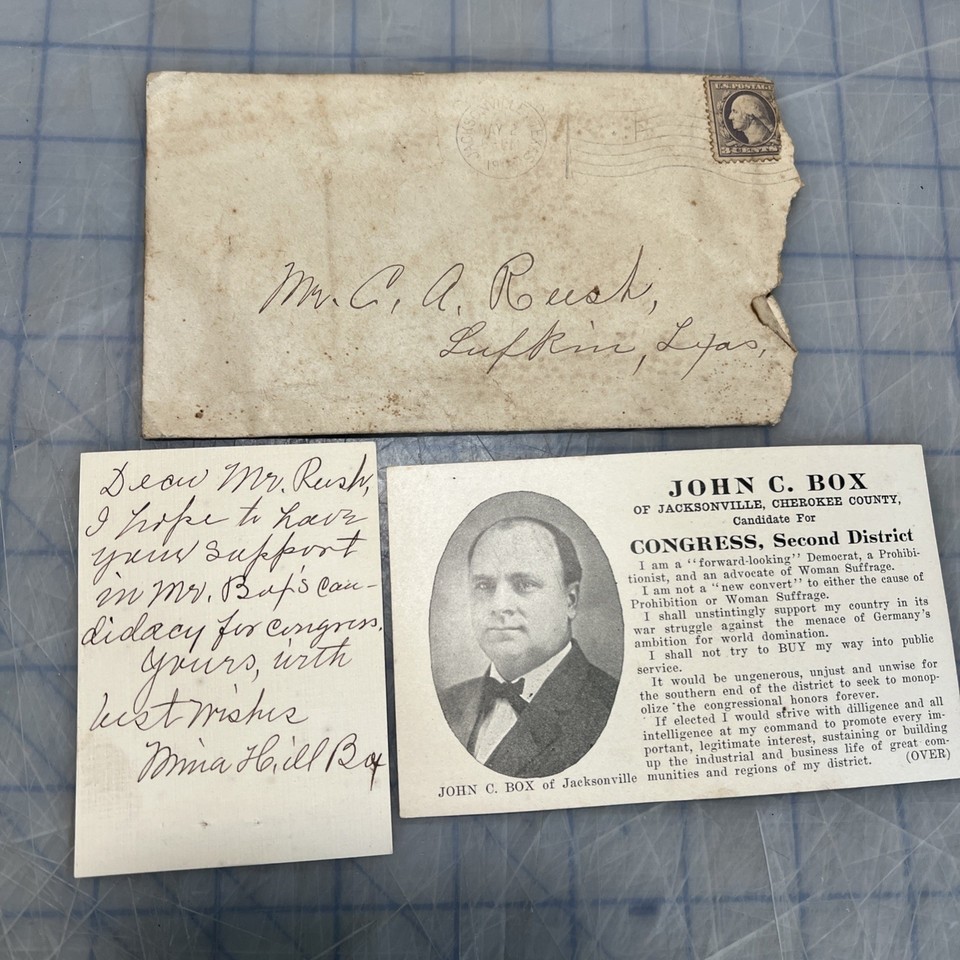 U.S. POSTAGE
3 CENTS 3
Mr. C. A. Rush,
Lufkin, Texas,
Dear Mr. Rush,
I hope to have
your support
in Mr. Box's can-
didacy for congress.
Yours, with
best wishes
Mina Hill Box
JOHN C. BOX
OF JACKSONVILLE, CHEROKEE COUNTY,
Candidate For
CONGRESS, Second District
I am a "forward-looking" Democrat, a Prohibi-
tionist, and an advocate of Woman Suffrage.
I am not a "new convert" to either the cause of
Prohibition or Woman Suffrage.
I shall unstintingly support my country in its
war struggle against the menace of Germany's
ambition for world domination.
I shall not try to BUY my way into public
service.
It would be ungenerous, unjust and unwise for
the southern end of the district to seek to monop-
olize the congressional honors forever.
If elected I would strive with dilligence and all
intelligence at my command to promote every im-
portant, legitimate interest, sustaining or building
up the industrial and business life of great com-
munities and regions of my district. (OVER)
JOHN C. BOX of Jacksonville